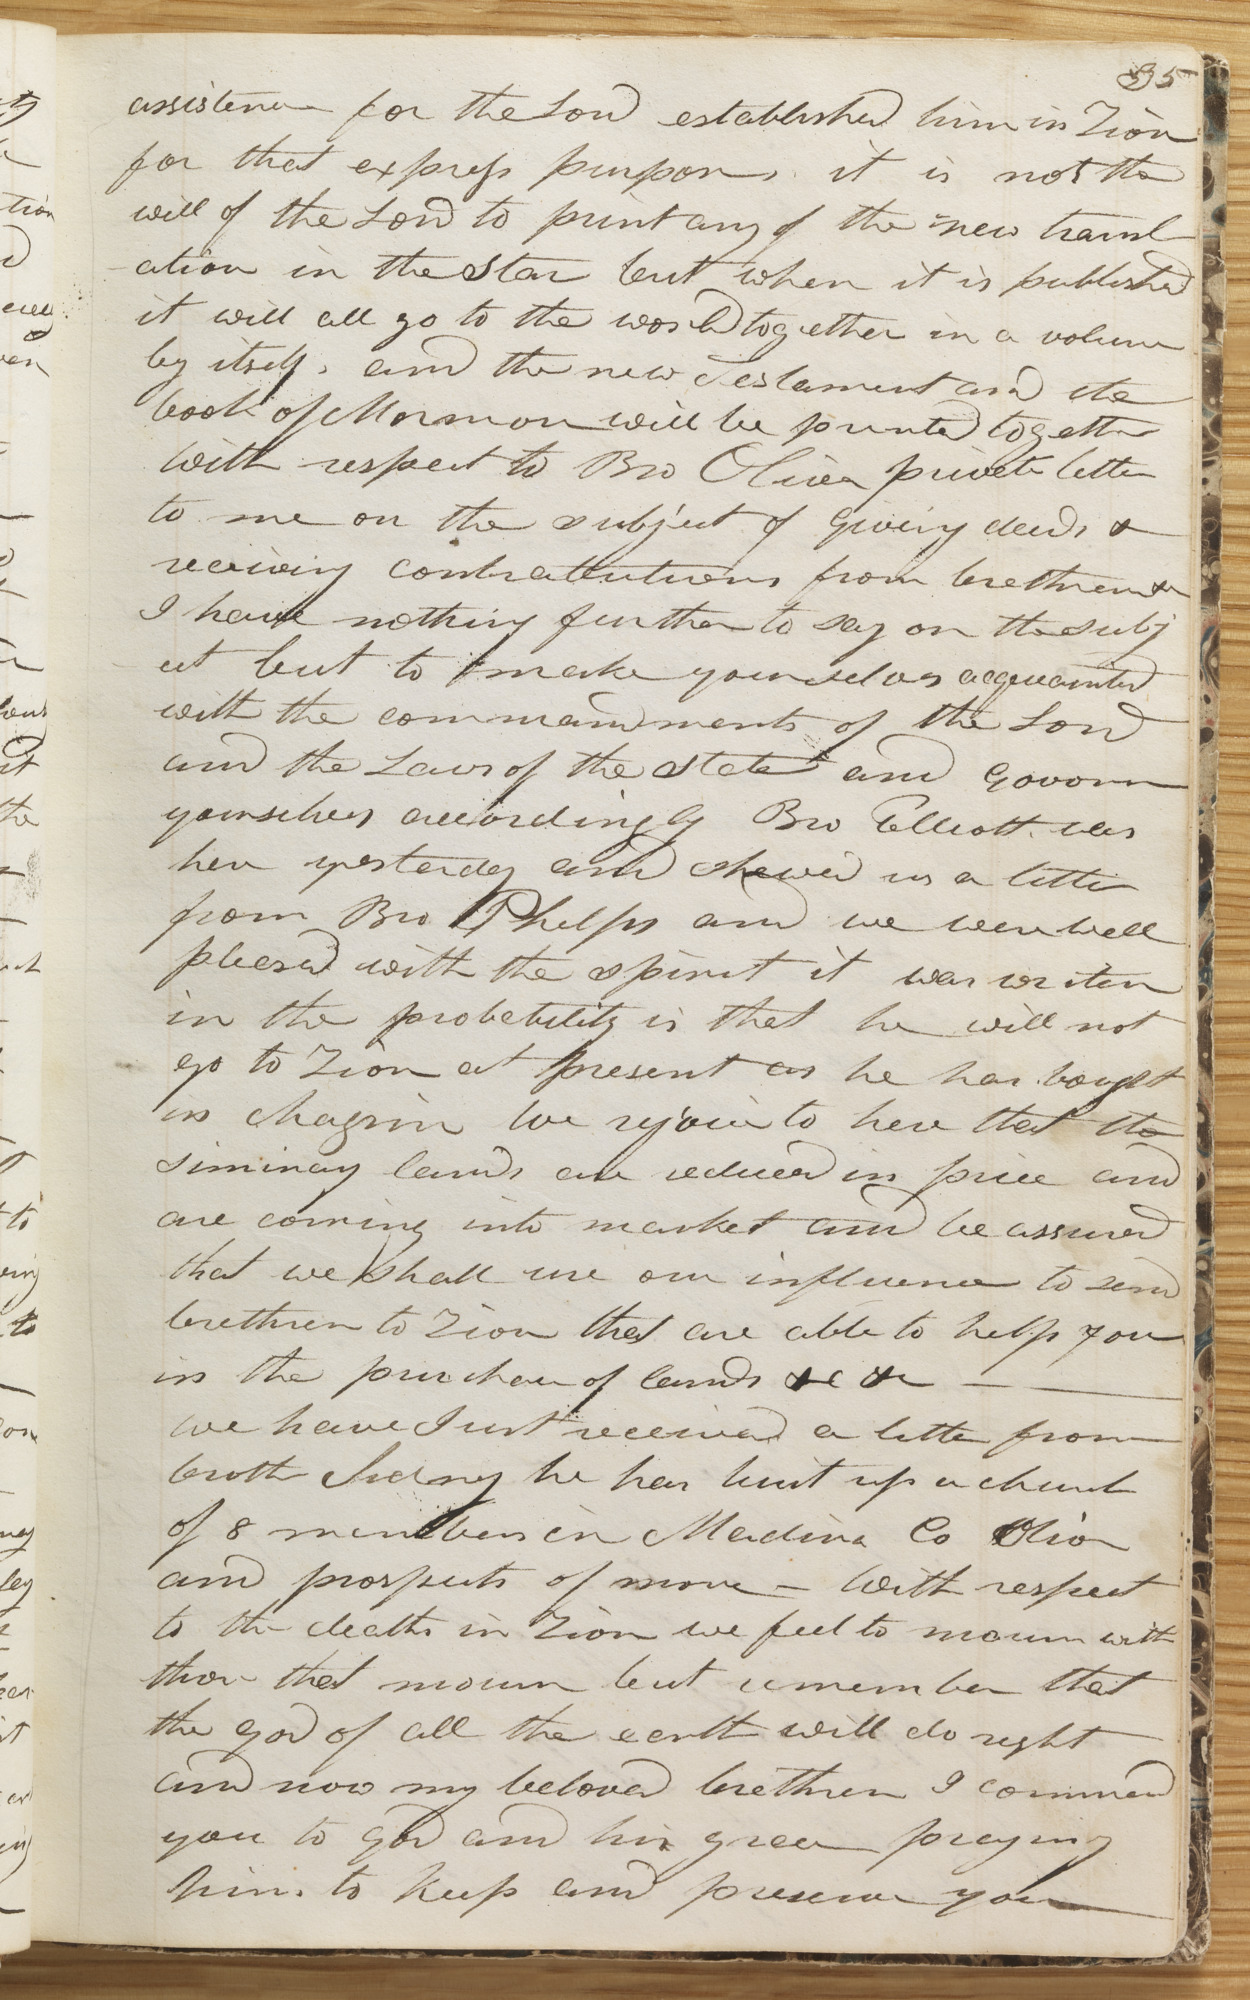 35
assistence for the Lord established him in Zion
for that express purpose. it is not the
will of the Lord to print any of the new transl
-ation in the Star but when it is published
it will all go to the world together in a volume
by itself, and the new Testament and the
book of Mormon will be printed together
with respect to Bro Oliver private letter
to me on the subject of giveing deeds &
receiveing contratbutions from brethren &c
I have nothing further to say on the subj
ect but to make yourselves acquainted
with the commandments of the Lord
and the Laws of the state and govorn
yourselves accordingly Bro Elliott was
here yesterday and shewed us a letter
from Bro Phelps and we were well
pleased with the spirit it was writen
in the probebility is that he will not
go to Zion at present as he has bought
in Chagrin We rejoice to here that the
siminary lands are reduced in price and
are coming into market and be assured
that we shall use our influence to send
brethren to Zion that are able to help you
in the purchase of lands &c &c
we have Just received a letter from
broth Sidney he has built up a church
of 8 members in Medina Co Ohio
and prospects of more — With respect
to the deaths in Zion we feel to mourn with
those that mourn but remember that
the god of all the earth will do right
and now my beloved brethren I commend
you to god and his grace praying
him to keep and preserve you